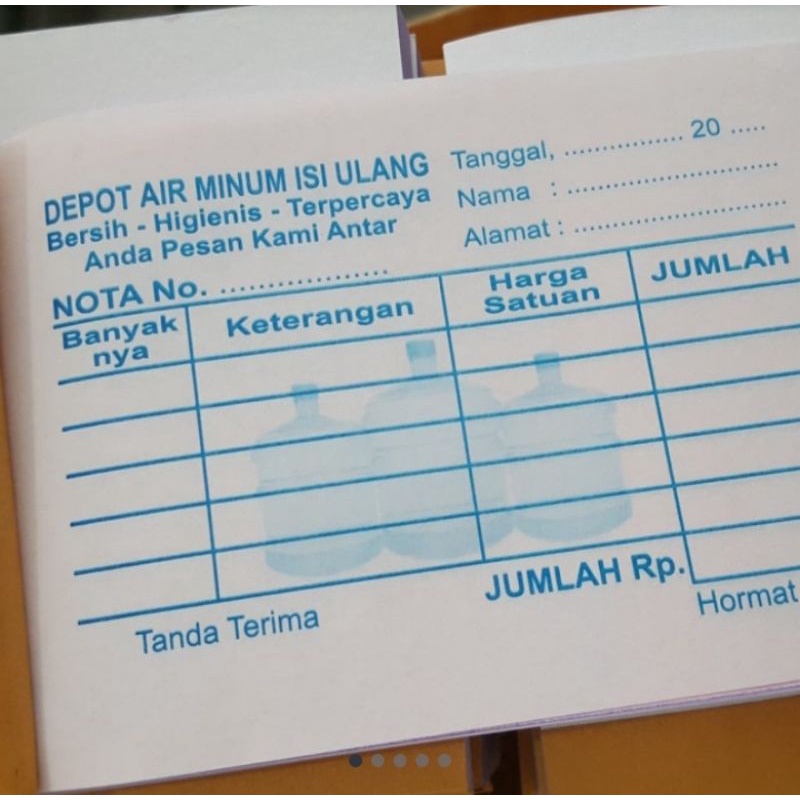 DEPOT AIR MINUM ISI ULANG
Bersih - Higienis - Terpercaya
Anda Pesan Kami Antar
NOTA No. ....................
Tanggal, ................. 20 .....
Nama : ..............................
Alamat : ..............................
Banyak
nya
Keterangan
Harga
Satuan
JUMLAH
JUMLAH Rp.
Tanda Terima
Hormat